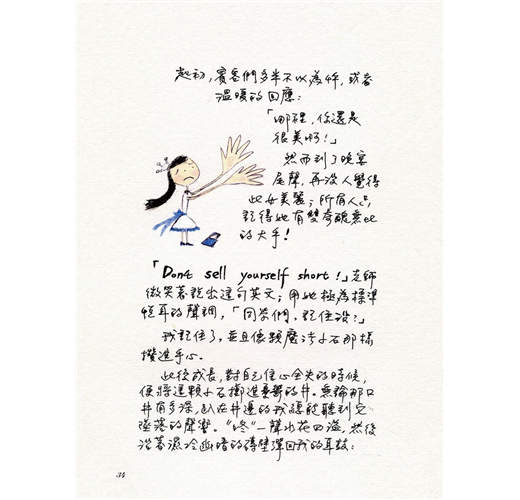 起初，賓客們多半不以為忤，或者
溫暖的回應：
「哪裡，你還是
很美啊！」
然而到了晚宴
尾聲，再沒人覺得
此女美麗；所有人只
記得她有雙奇醜無比
的大手！
「Don't sell yourself short！」老師
微笑著說出這句英文；用她極為標準
悅耳的聲調，「同學們，記住沒？」
我記住了，並且像顆魔法小石那樣
攢進手心。
此後成長，對自己信心全失的時候，
便將這顆小石擲進憂鬱的井。無論那口
井有多深，趴在井邊的我總能聽到它
墜落的聲響。“咚”一聲水花四濺，然後
沿著濕冷幽暗的磚壁彈回我的耳鼓：
34